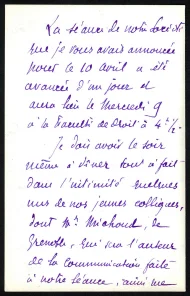 La séance de notre Société
que je vous avais annoncée
pour le 10 avril a été
avancée d'un jour et
aura lieu le Mercredi 9
à la Faculté de Droit à 4h ½.
Je dois avoir le soir
même à dîner tout à fait
dans l'intimité quelques
uns de nos jeunes collègues,
dont Mr Michoud, de
Grenoble, qui sera l'auteur
de la communication faite
à notre séance,